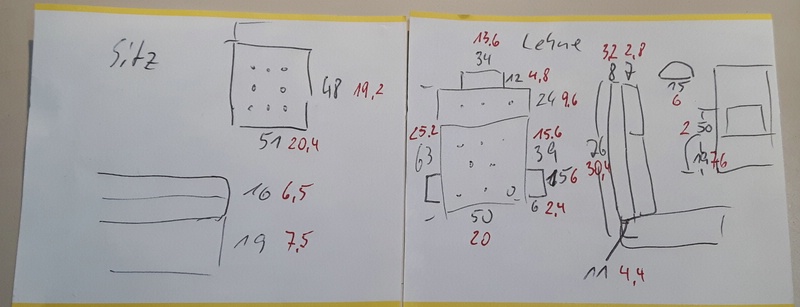 Sitz
48 19,2
51 20,4
16 6,5
19 7,5
Lehne
13,6
34
12 4,8
24 9,6
25,2
63
15,6
39
15 6
6 2,4
50
20
3,2 2,8
8 7
76
30,4
11 4,4
15
6
2 50
19 7,6